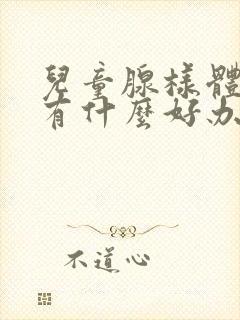 兒童腺樣體
有什麼好办
不道心